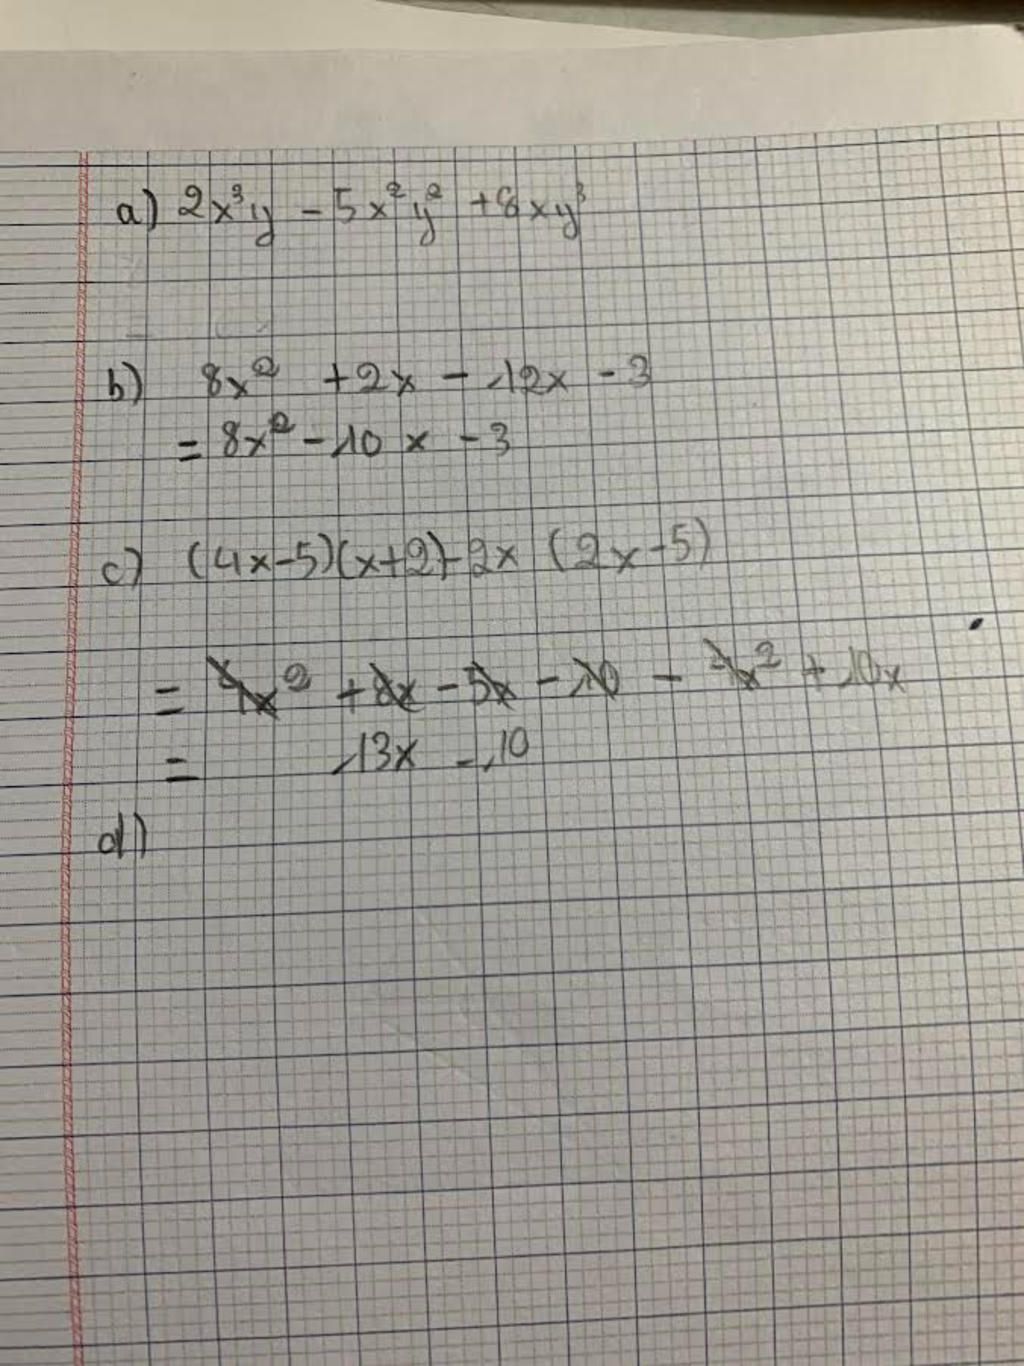 a) 2x³y - 5x²y² + 8xy³
b) 8x² + 2x - 12x - 3
= 8x² - 10x - 3
c) (4x-5)(x+2)-2x (2x-5)
= 4x² + 8x - 5x - 10 - 4x² + 10x
= 13x - 10
d)